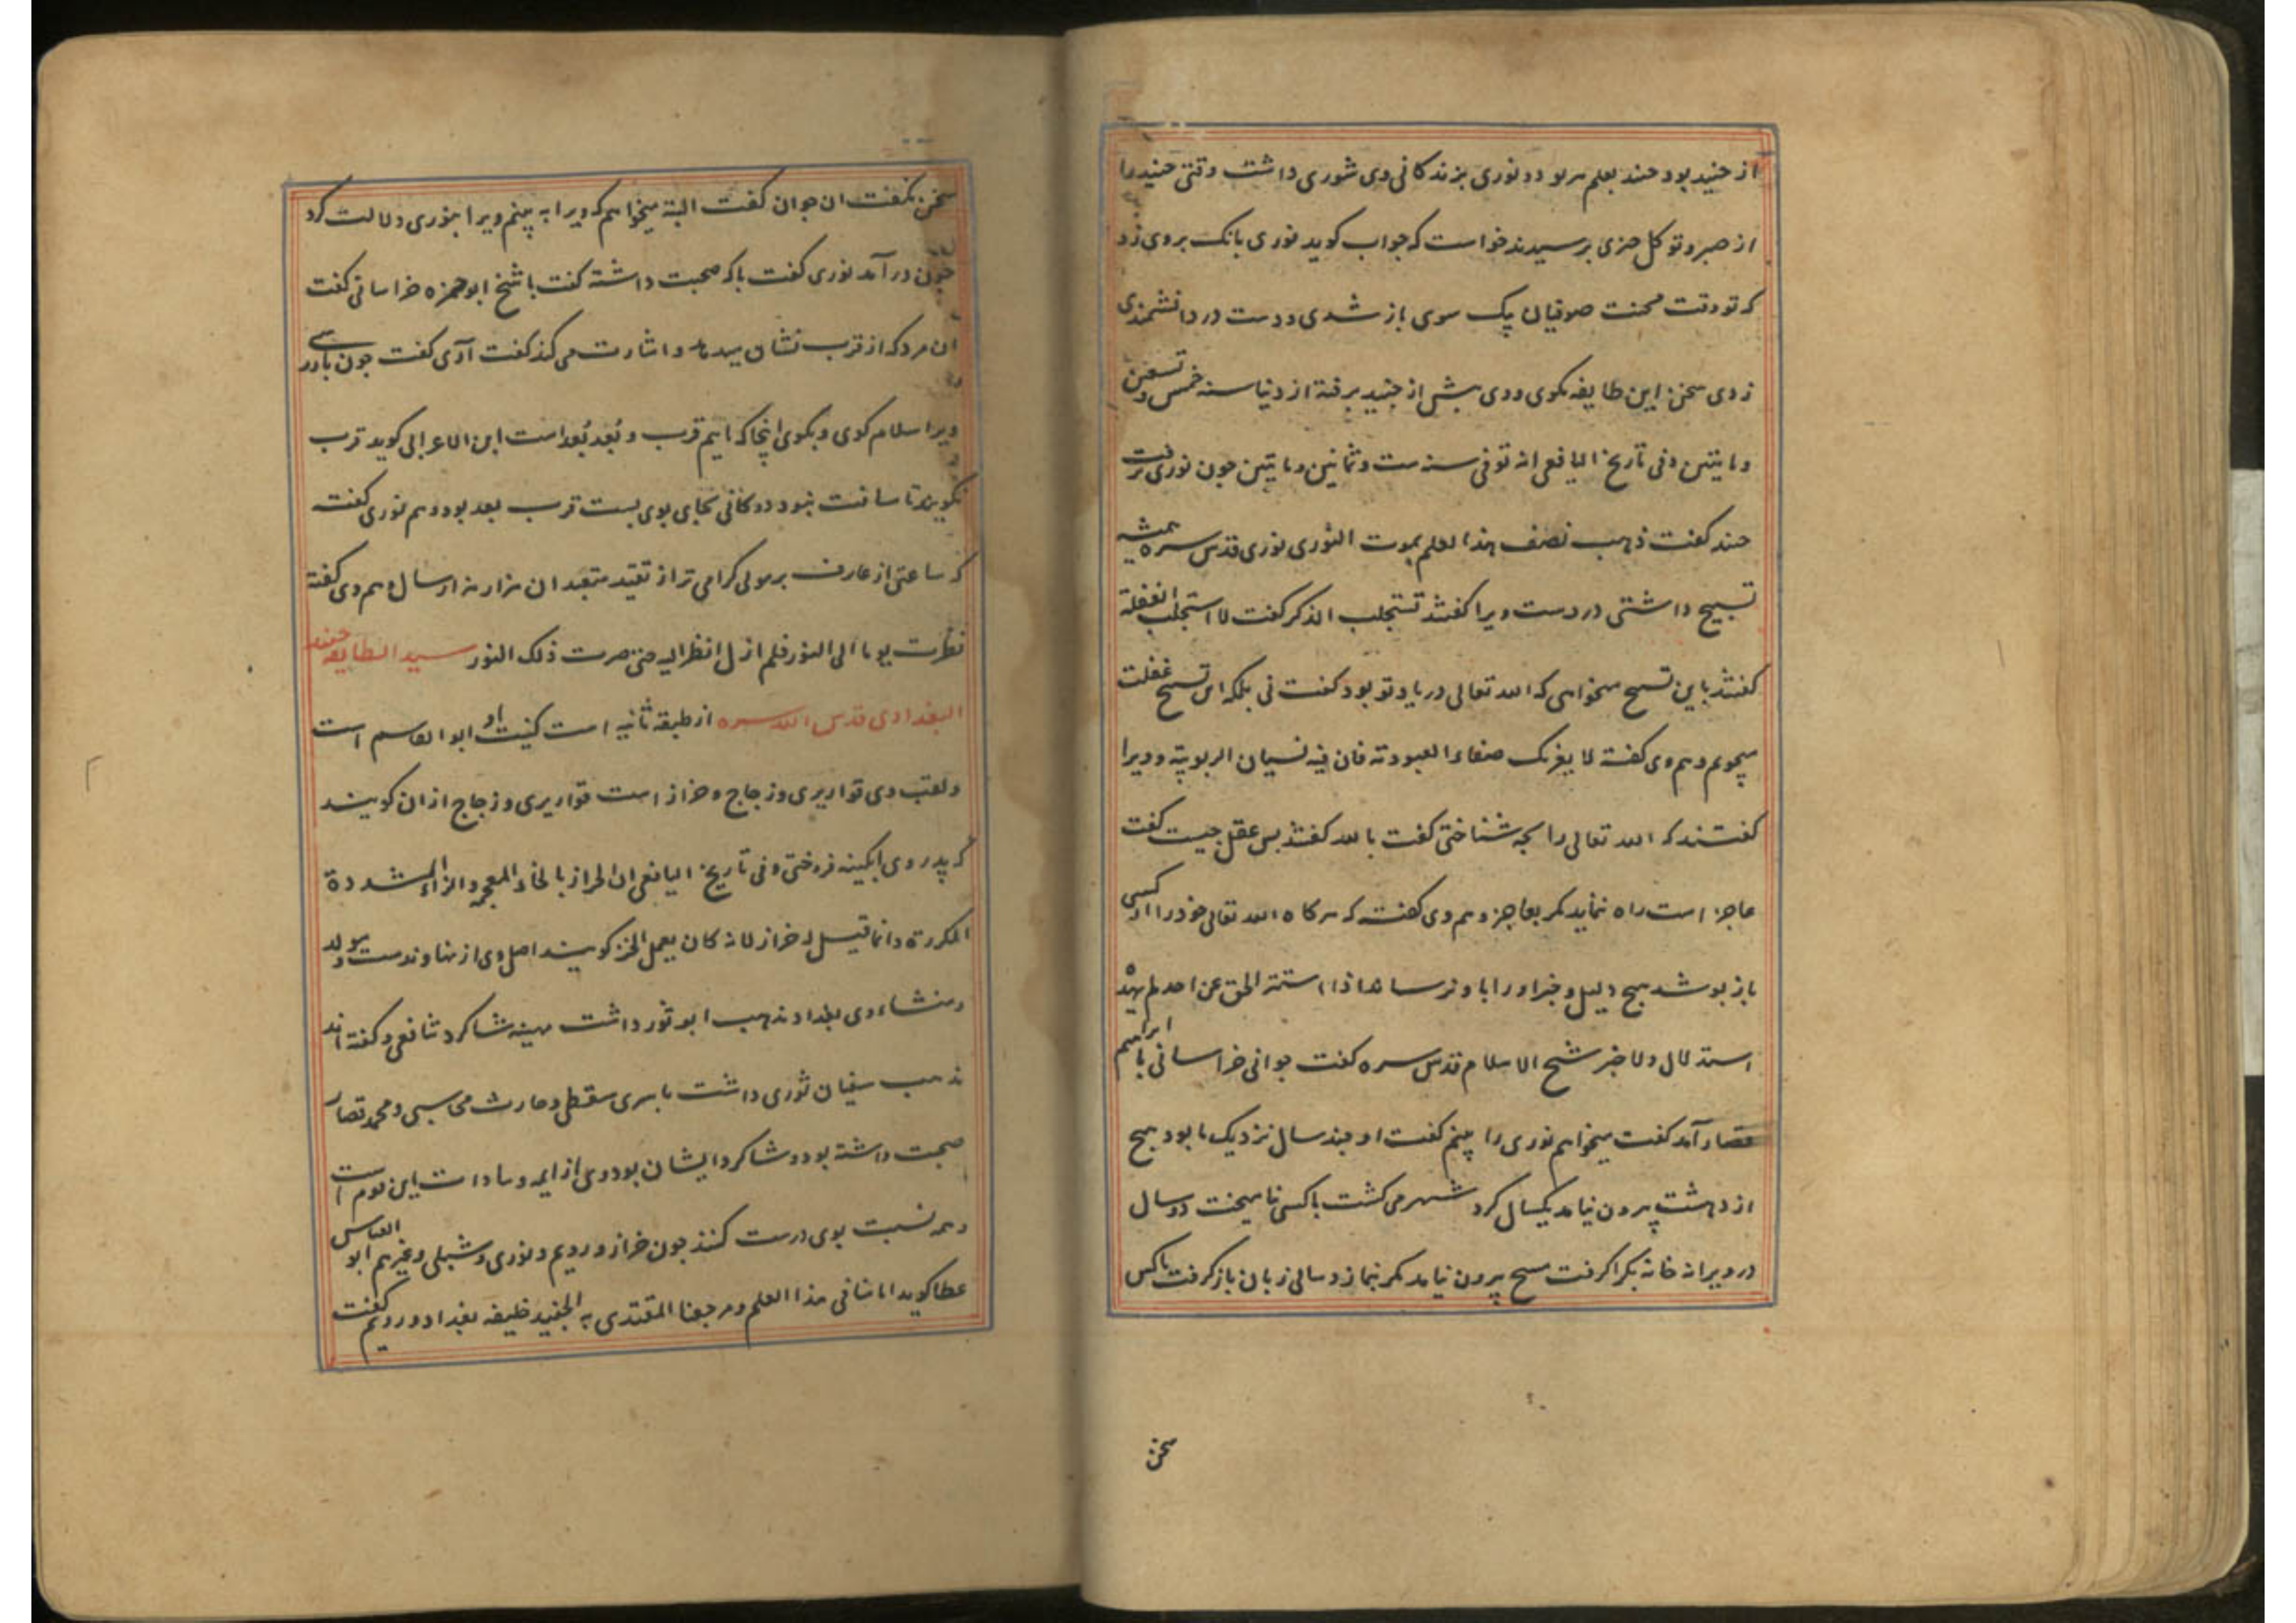 از جنید بود جنید بعلم مربود و نوری بزندکانی وی شوری داشت وقتی جنید را
از صبر و توکل چیزی پرسیدند خواست که جواب کوید نوری بانک بر وی زد
که تو وقت محنت صوفیان یک سوی باز شدی و دست در دانشمندی
زدی سخن این طایفه مکوی و وی پیش از جنید برفته از دنیا سنه خمس و تسعین
و مایتین و فی تاریخ الیافعی انه توفی سنه ست و ثمانین و مایتین چون نوری برفت
جنید کفت ذهب نصف هذا العلم بموت النوری نوری قدس سره همیشه
تسبیح داشتی در دست ویرا کفتند تستجلب الذکر کفت لا استجلب الغفلة
کفتند باین تسبیح میخواهی که الله تعالی در یاد تو بود کفت نی بلکه این تسبیح غفلت
میجویم و هم وی کفته لا یغرنک صفاء العبودته فان فیه نسیان الربوبیة و ویرا
کفتند که الله تعالی را بچه شناختی کفت بالله کفتند پس عقل چیست کفت
عاجز است راه نماید مکر بعاجز و هم وی کفته که هرکاه الله تعالی خود را از کسی
باز پوشد هیچ دلیل و خبر او را باو نرساند اذا استتر الحق عن احد لم یهده
استدلال ولا خبر شیخ الاسلام قدس سره کفت جوانی خراسانی با ابراهیم
قصار آمد کفت میخواهم نوری را بینم کفت او چند سال نزدیک ما بود هیچ
از دهشت بیرون نیامد یکسال کرد شهر می کشت با کسی نامیخت دو سال
در ویرانه خانه بکرا کرفت هیچ بیرون نیامد مکر نماز و سالی زبان باز کرفت با کس
سخن
سخن نکفت ان جوان کفت البته میخواهم که ویرا به بینم ویرا بنوری دلالت کرد
چون درآمد نوری کفت با که صحبت داشته کفت با شیخ ابوحمزه خراسانی کفت
ان مرد که از قرب نشان میدهد و اشارت می کند کفت آری کفت چون باو رسی
ویرا سلام کوی و بکوی اینجا که ایم قرب و بُعد بُعد است ابن الاعرابی کوید قرب
نکویند تا مسافت نبود و دوکانی بجای بوی بست قرب بعد بود و هم نوری کفت
که ساعتی از عارف بر مولی کرامی تر از تعبد متعبدان هزار هزار سال و هم وی کفته
نظرت یوما الی النور فلم ازل انظر الیه حتی صرت ذلک النور سید الطایفه جنید
البغدادی قدس الله سره از طبقه ثانیه است کنیت او ابوالقاسم است
و لقب وی قواریری و زجاج و خزاز است قواریری و زجاج از ان کویند
که پدر وی ابکینه فروختی و فی تاریخ الیافعی ان الخزاز بالخاء المعجمه و الزاء المشددة
المکررة و انما قیل له خزاز لانه کان یعمل الخز کویند اصل وی از نهاوندست و مولد
و منشاء وی بغداد مذهب ابو ثور داشت مهینه شاکرد شافعی و کفته اند
مذهب سفیان ثوری داشت با سری سقطی و حارث محاسبی و محمد قصار
صحبت داشته بود و شاکرد ایشان بود و وی از ایمه و سادات این قوم است
و همه نسبت بوی درست کنند چون خراز و رویم و نوری و شبلی و غیرهم ابو العباس
عطا کوید امامنا فی هذا العلم و مرجعنا المقتدی به الجنید خلیفه بغداد و رویم کفت